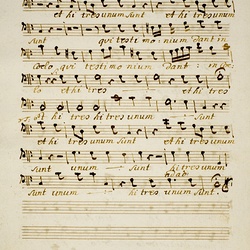 et hi tres unum sunt et hi tres unum
sunt qui testimonium dant in
Coelo, qui testimonium dant: in Coe
lo et hi et hi tres
et hi tres hi tres unum sunt
et hi tres unum sunt et hi tres unum
sunt unum sunt hi tres unum
sunt unum hi tres unum sunt.